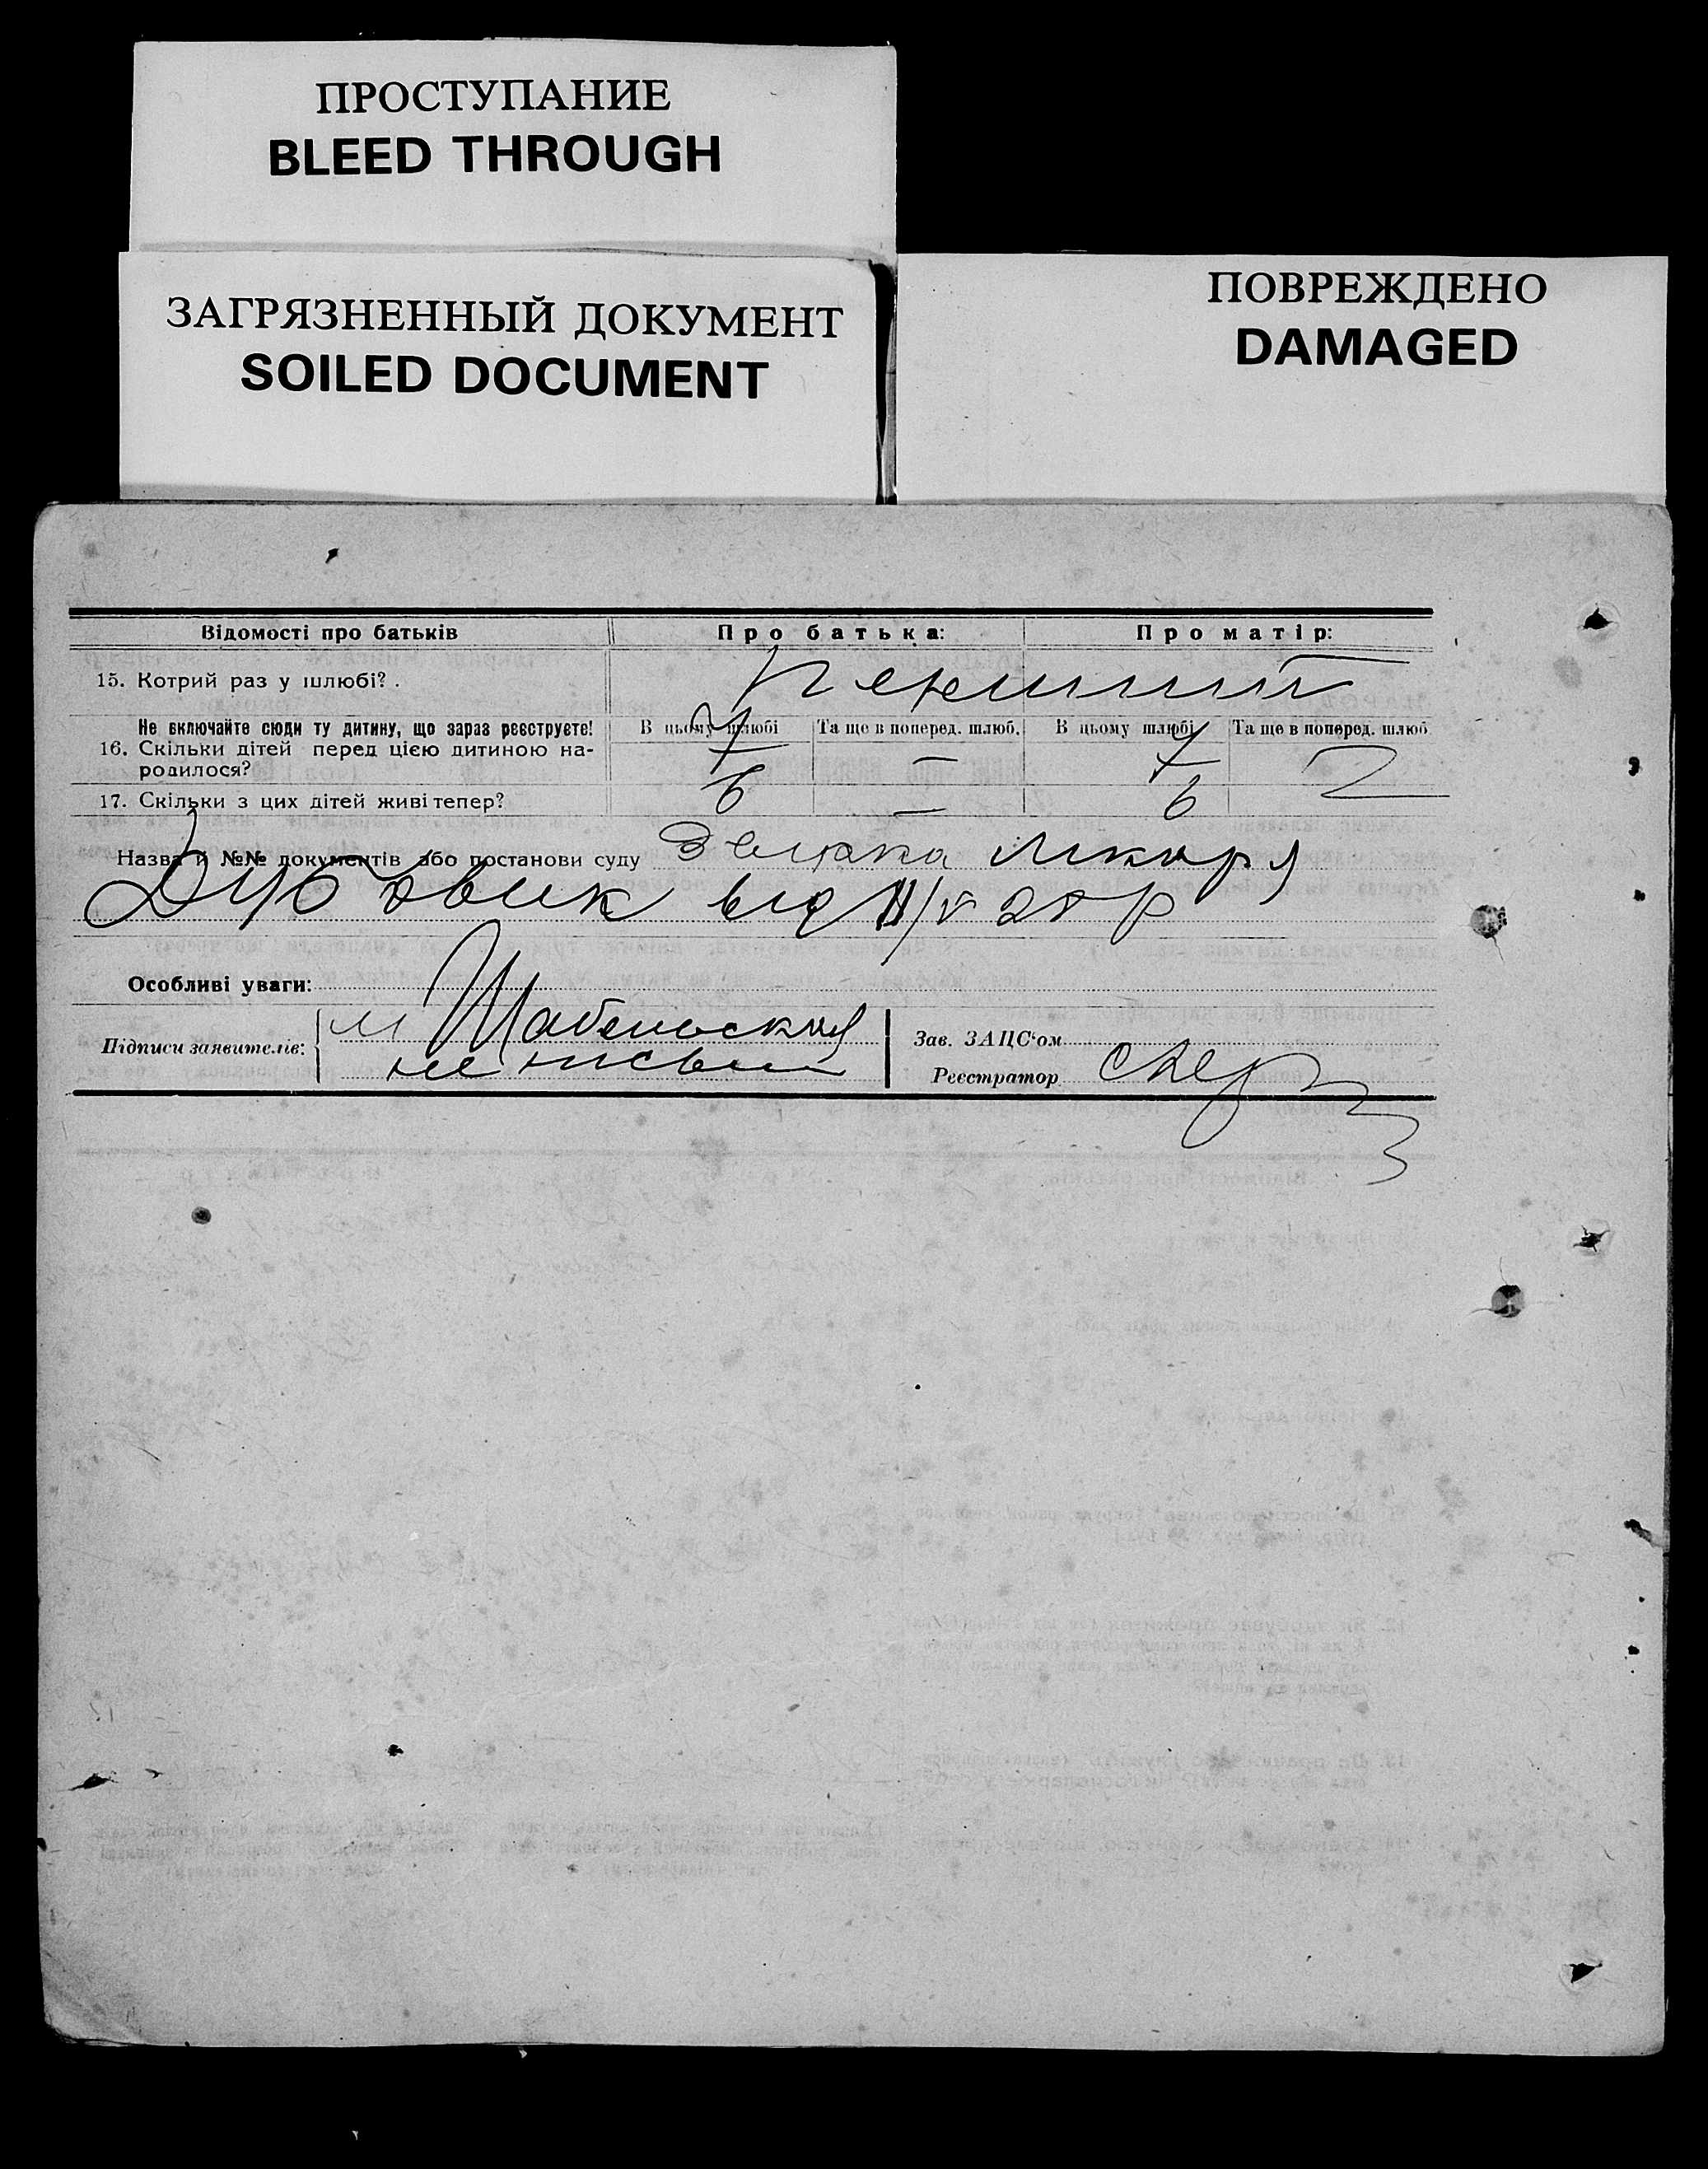 ПРОСТУПАНИЕ
BLEED THROUGH
ЗАГРЯЗНЕННЫЙ ДОКУМЕНТ
SOILED DOCUMENT
ПОВРЕЖДЕНО
DAMAGED
Відомості про батьків Про батька: Про матір:
15. Котрий раз у шлюбі? . перший
Не включайте сюди ту дитину, що зараз реєструєте! В цьому шлюбі Та ще в поперед. шлюб. В цьому шлюбі Та ще в поперед. шлюб
16. Скільки дітей перед цією дитиною на- 7 — 7
родилося?
17. Скільки з цих дітей живі тепер? 6 — 6
Назва й №№ документів або постанови суду лікаря
від
Особливі уваги:
Підписи заявителів: м Шабельская
не письм
Зав. ЗАЦС'ом
Реєстратор